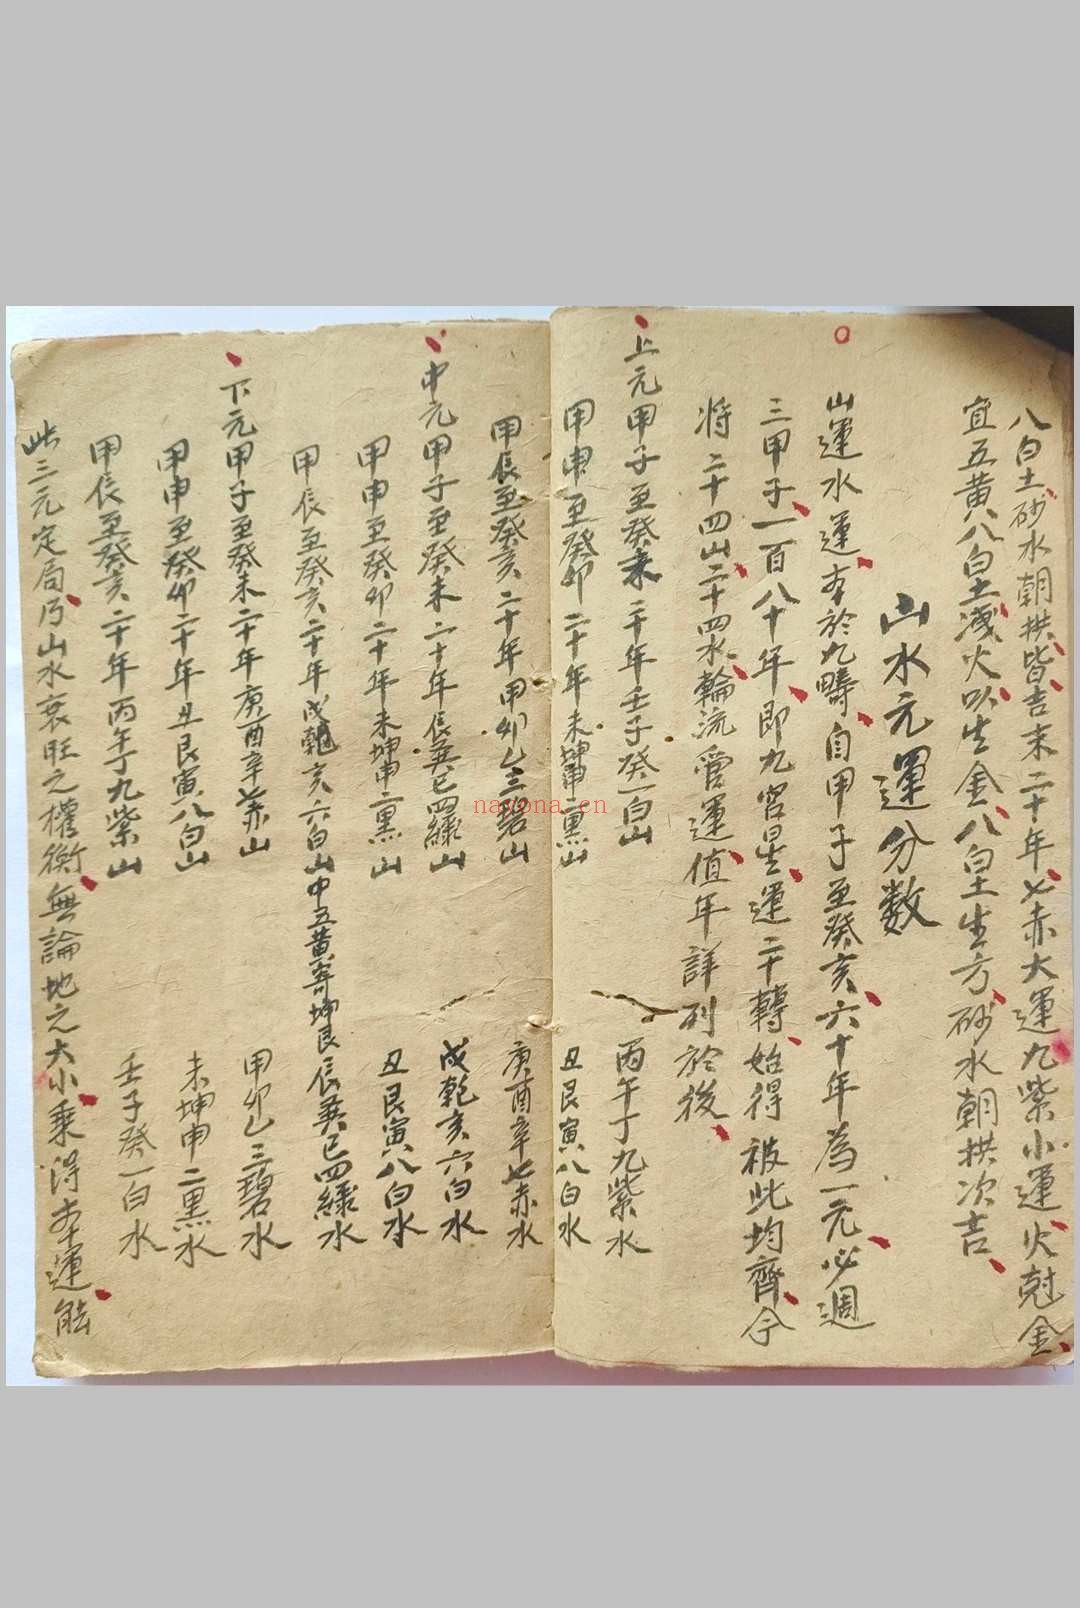 八白土砂水朝拱皆吉末二十年七赤大運九紫小運火尅金
宜五黄八白土洩火以生金八白土生方砂水朝拱次吉
山水元運分数
山運水運本於九疇自甲子至癸亥六十年為一元必週
三甲子一百八十年即九宮星運二十轉始得被此均齊今
将二十四山二十四水輪流管運值年詳列於後
上元甲子至癸未二十年壬子癸一白山 丙午丁九紫水
甲申至癸卯二十年未坤申二黑山 丑艮寅八白水
甲辰至癸亥二十年甲卯乙三碧山 庚酉辛七赤水
中元甲子至癸未二十年辰巽巳四緑山 戌乾亥六白水
甲申至癸卯二十年未坤申二黑山 丑艮寅八白水
甲辰至癸亥二十年戌乾亥六白山中五黄寄坤艮辰巽巳四緑水
下元甲子至癸未二十年庚酉辛七赤山 甲卯乙三碧水
甲申至癸卯二十年丑艮寅八白山 未坤申二黑水
甲辰至癸亥二十年丙午丁九紫山 壬子癸一白水
此三元定局乃山水衰旺之權衡無論地之大小乘得本運能
nayona.cn